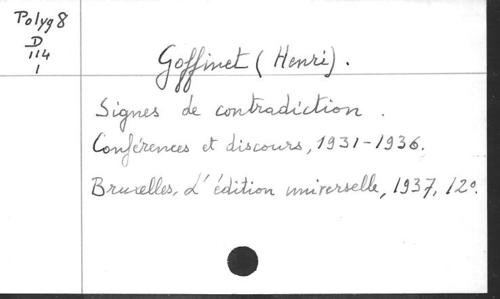 Polyg 8
D
114
1
Goffinet (Henri).
Signes de contradiction.
Conférences et discours, 1931-1936.
Bruxelles, L'édition universelle, 1937, 12º.